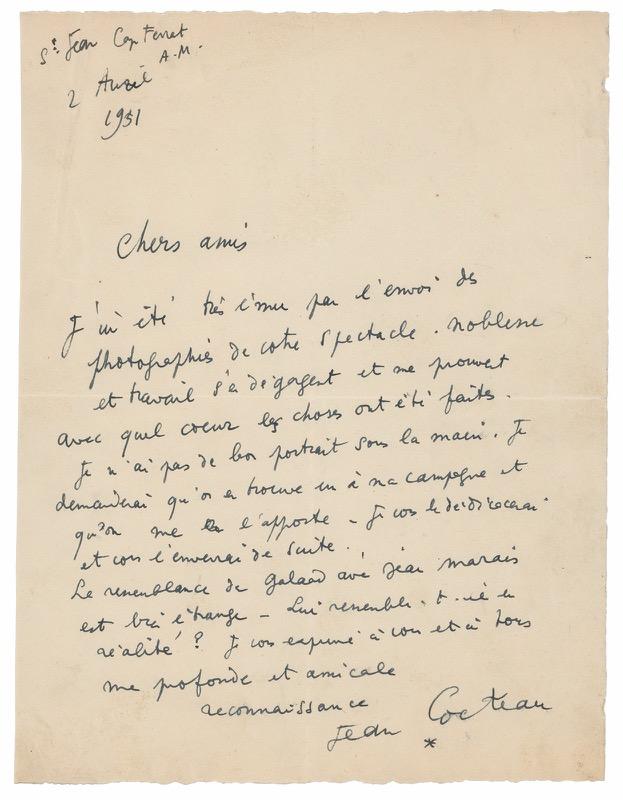 St Jean Cap Ferrat
A.M.
2 Avril
1951
Chers amis
J'ai été très ému par l'envoi des
photographies de votre spectacle. noblesse
et travail s'en dégagent et me prouvent
avec quel coeur les choses ont été faites.
Je n'ai pas de bon portrait sous la main. Je
demanderai qu'on en trouve un à ma campagne et
qu'on me l'apporte - Je vous le dédicacerai
et vous l'enverrai de suite.
La ressemblance de Galaad avec Jean Marais
est bien étrange - Lui ressemble-t-il en
réalité ? Je vous exprime à vous et à tous
ma profonde et amicale
reconnaissance
Jean Cocteau
*